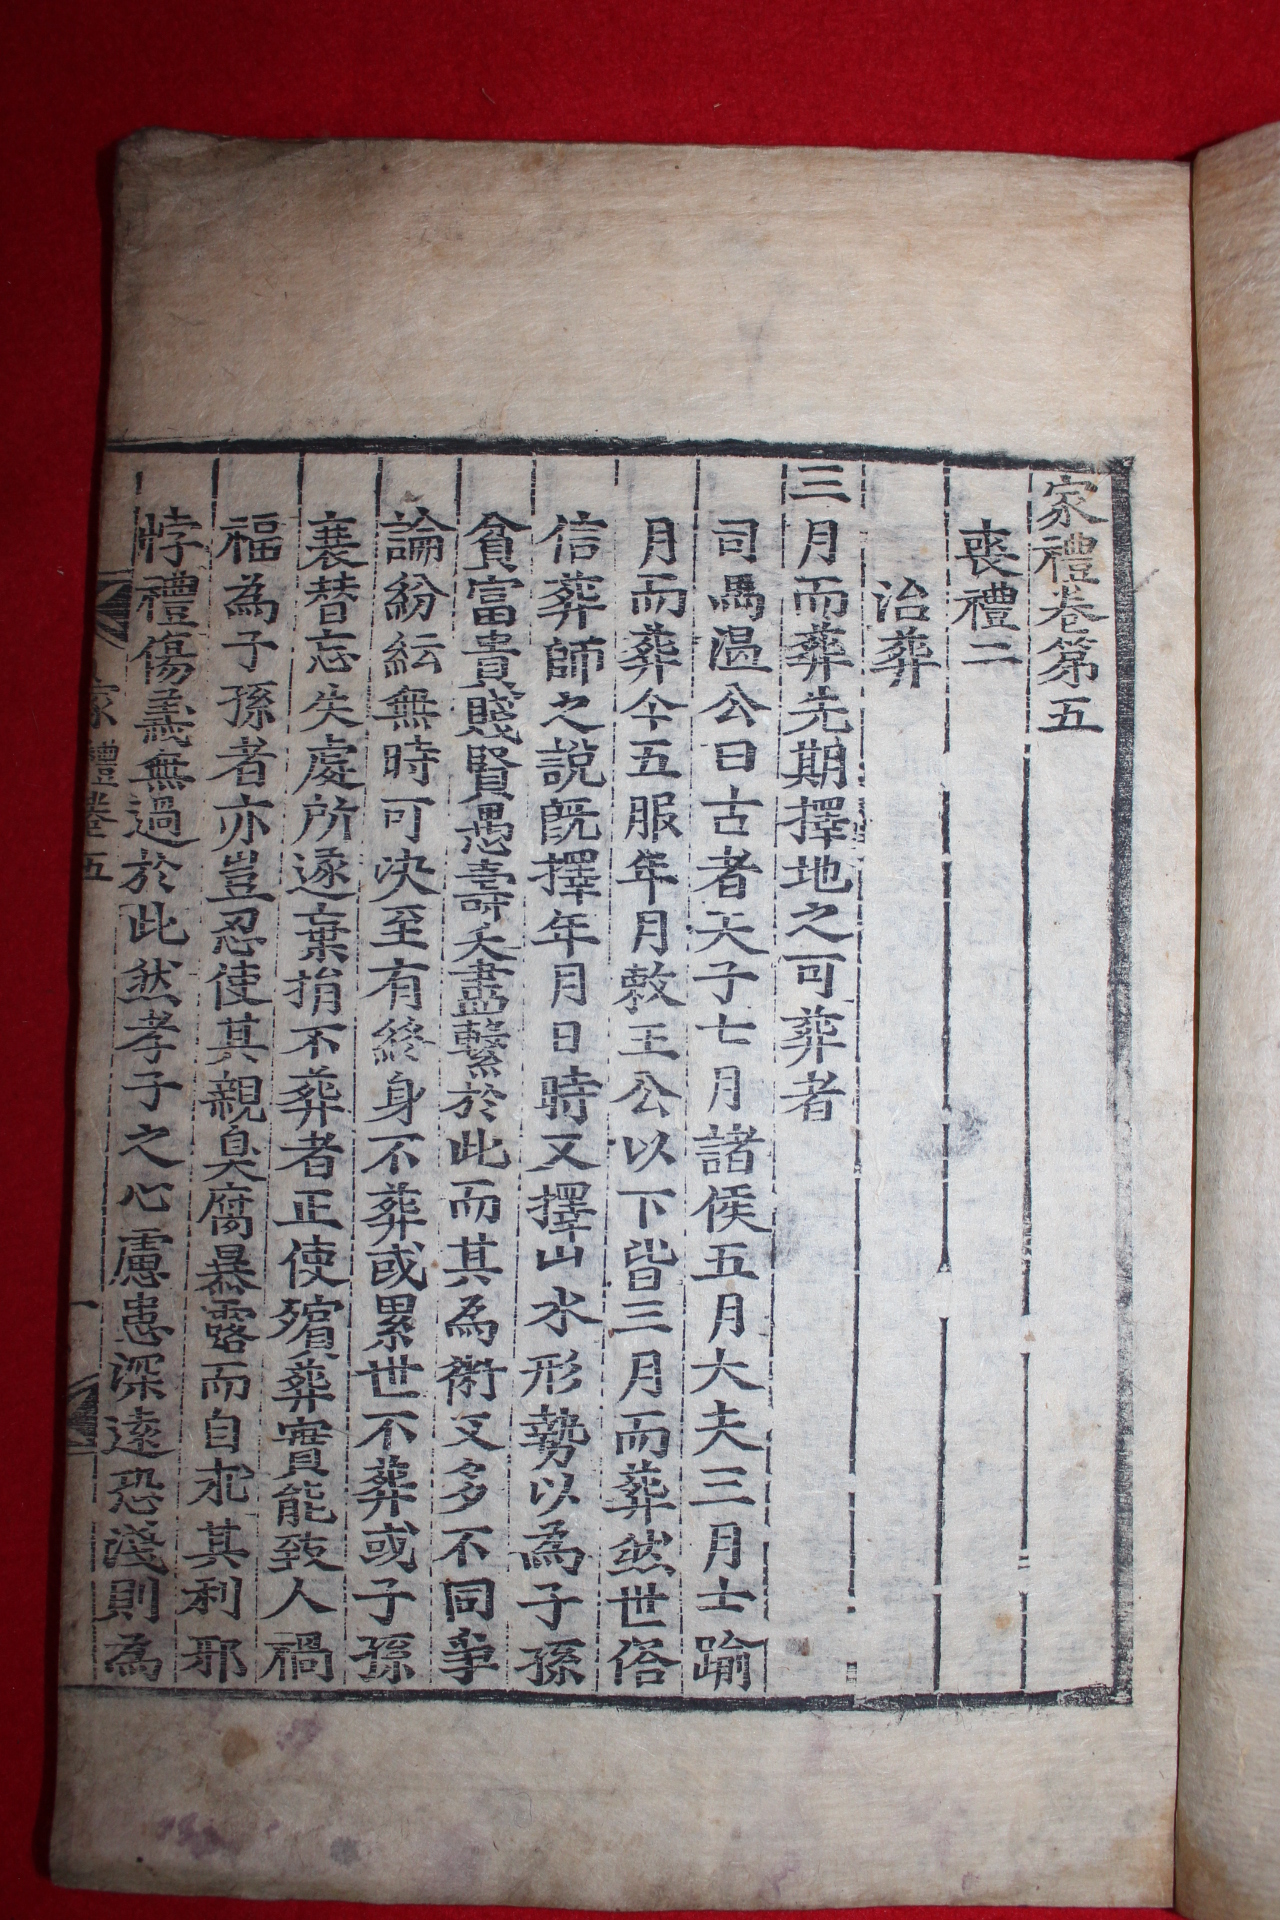 家禮卷第五
喪禮二
治葬
三月而葬先期擇地之可葬者
司馬溫公曰古者天子七月諸侯五月大夫三月士踰
月而葬今五服年月敕王公以下皆三月而葬然世俗
信葬師之說旣擇年月日時又擇山水形勢以為子孫
貧富貴賤賢愚壽夭盡繫於此而其為術又多不同爭
論紛紜無時可决至有終身不葬或累世不葬或子孫
衰替忘失處所遂棄捐不葬者正使殯葬實能致人禍
福為子孫者亦豈忍使其親臭腐暴露而自求其利邪
悖禮傷義無過於此然孝子之心慮患深遠恐淺則為
家禮卷五
一